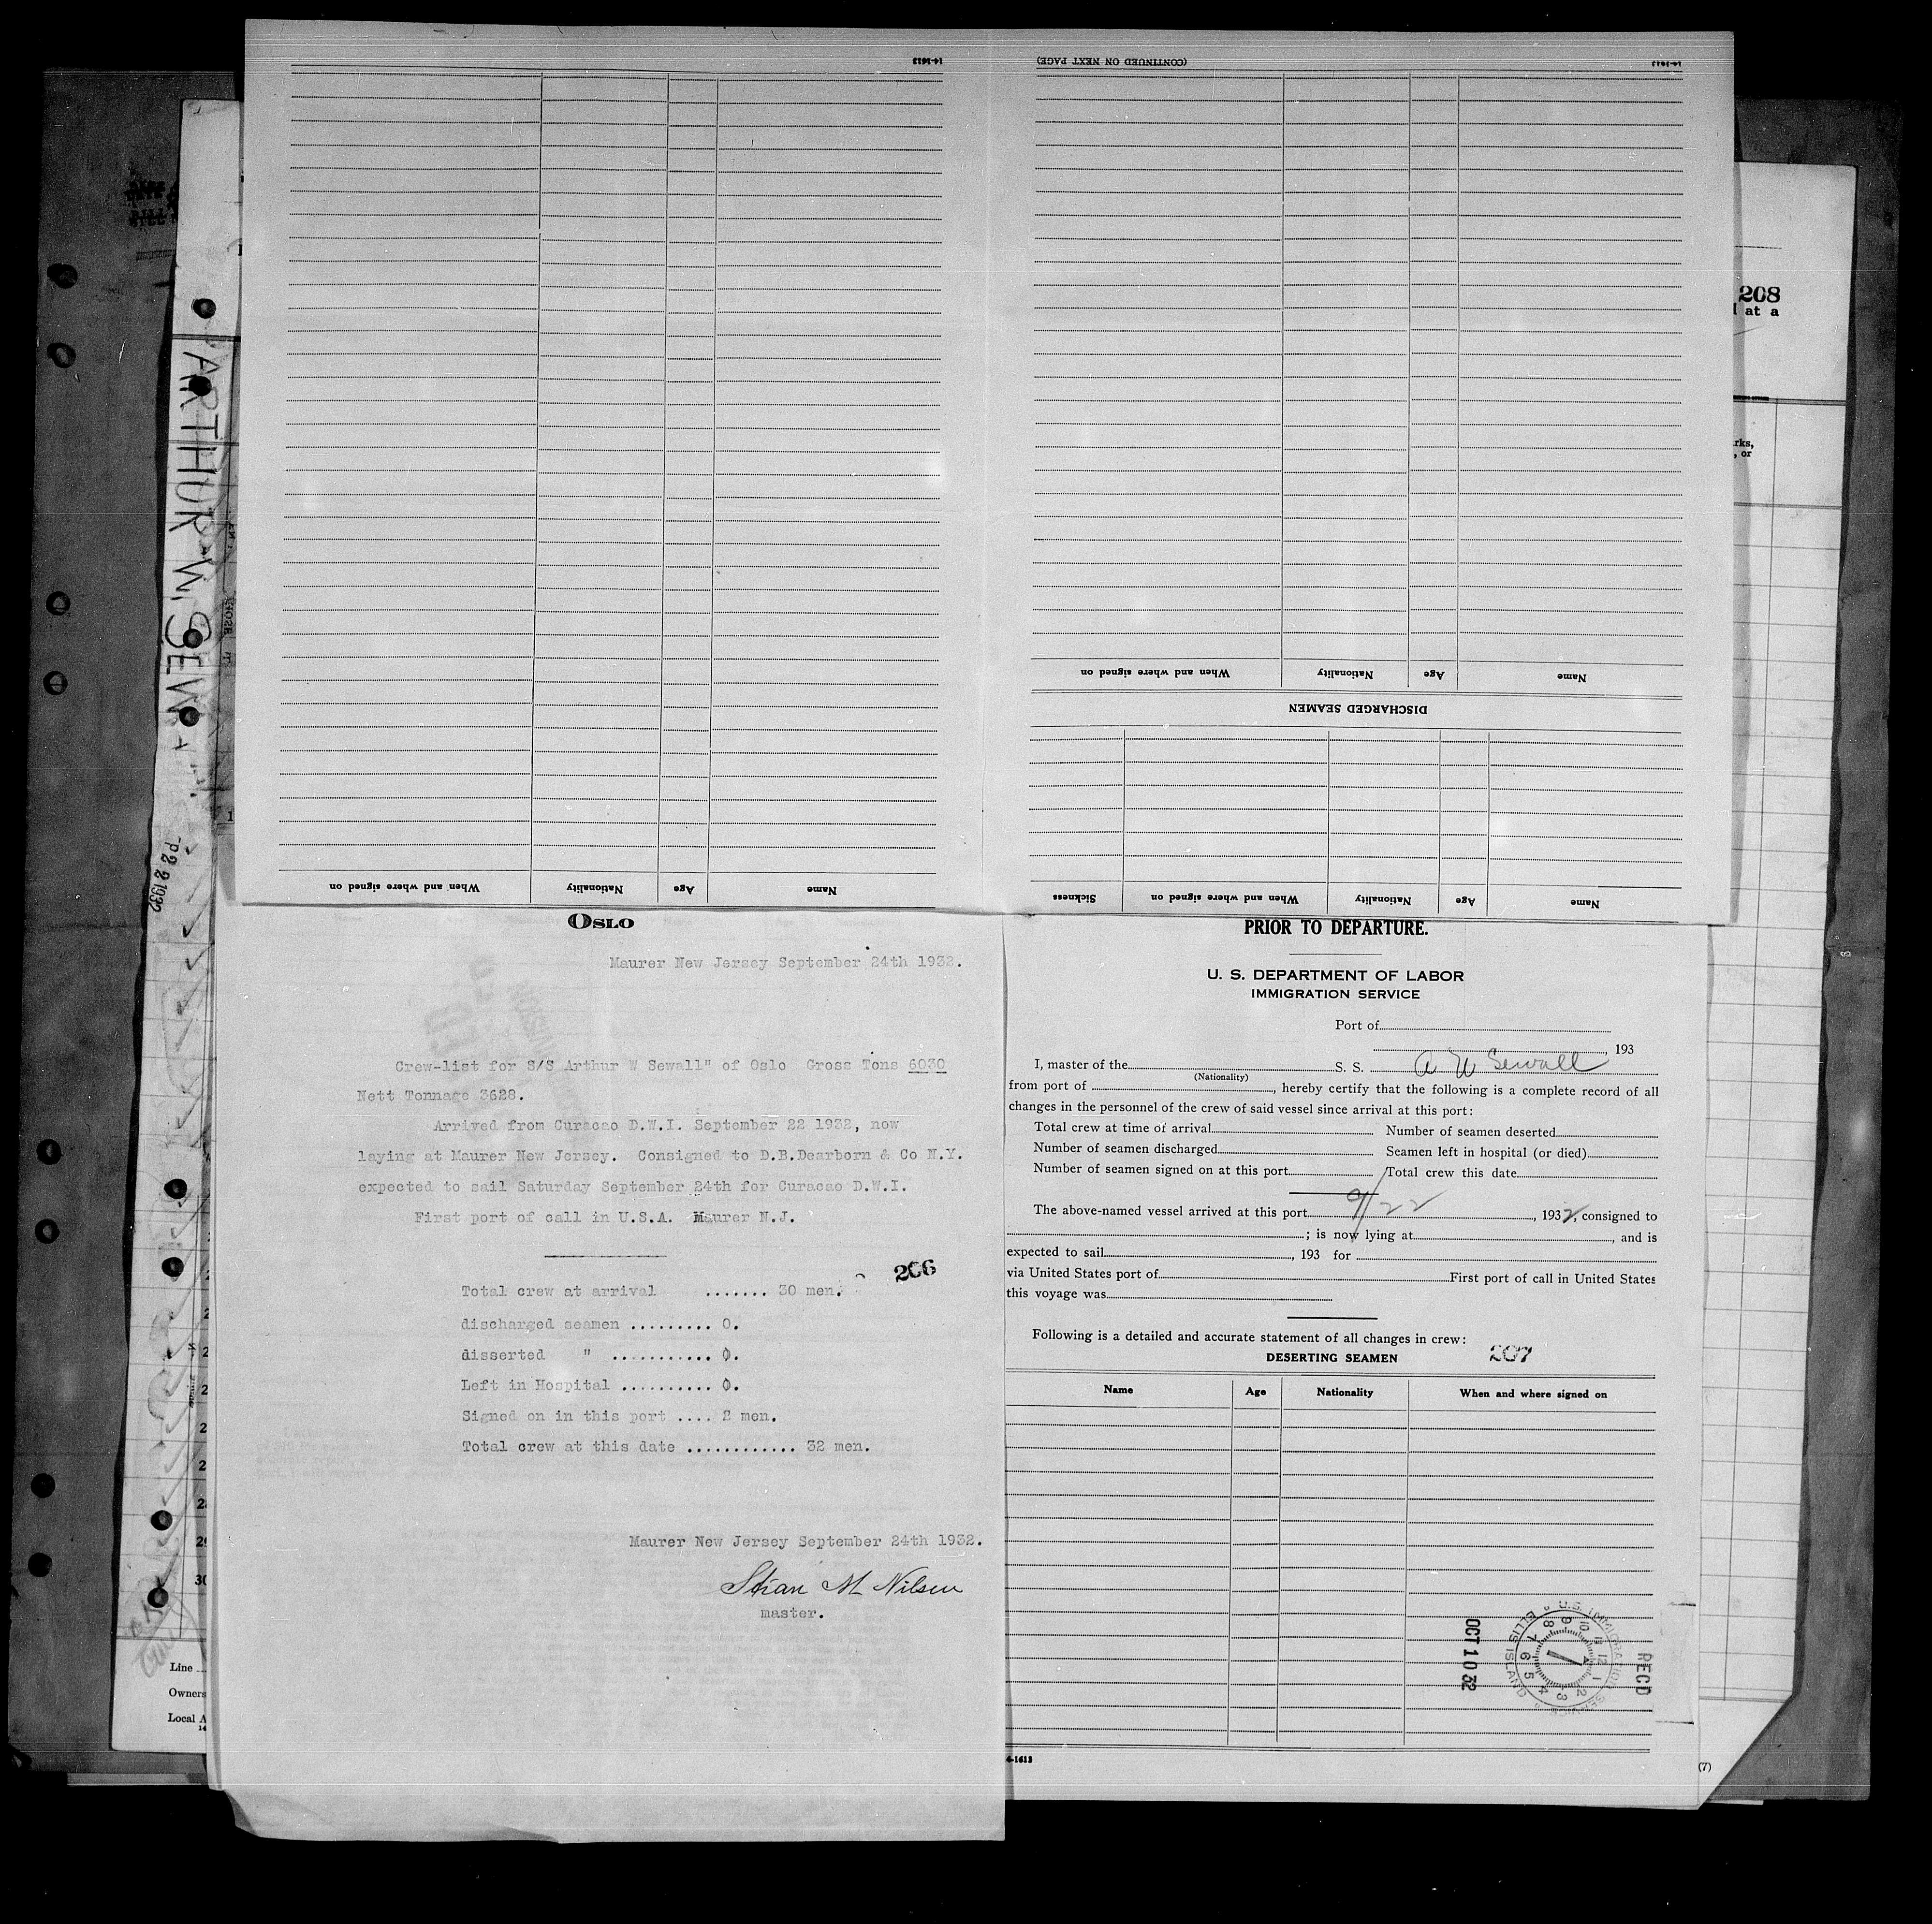 14-1613
(CONTINUED ON NEXT PAGE)
14-1613
When and where signed on
Nationality
Age
Name
DISCHARGED SEAMEN
Sickness
When and where signed on
Nationality
Age
Name
When and where signed on
Nationality
Age
Name
208
at a
rks,
, or
ARTHUR W. SEWA
P 22 1932
OSLO
Maurer New Jersey September 24th 1932.
Crew-list for S/S Arthur W Sewall" of Oslo Gross Tons 6030
Nett Tonnage 3628.
Arrived from Curacao D.W.I. September 22 1932, now
laying at Maurer New Jersey. Consigned to D.B.Dearborn & Co N.Y.
expected to sail Saturday September 24th for Curacao D.W.I.
First port of call in U.S.A. Maurer N.J.
206
Total crew at arrival ....... 30 men.
discharged seamen ......... 0.
disserted " ........... 0.
Left in Hospital .......... 0.
Signed on in this port .... 2 men.
Total crew at this date ............ 32 men.
Maurer New Jersey September 24th 1932.
Stian M Nilsen
master.
Line
Owners
Local A
PRIOR TO DEPARTURE.
U. S. DEPARTMENT OF LABOR
IMMIGRATION SERVICE
Port of
, 193
I, master of the S. S. A W Sewall
(Nationality)
from port of , hereby certify that the following is a complete record of all
changes in the personnel of the crew of said vessel since arrival at this port:
Total crew at time of arrival Number of seamen deserted
Number of seamen discharged Seamen left in hospital (or died)
Number of seamen signed on at this port Total crew this date
The above-named vessel arrived at this port 9/22, 1932, consigned to
; is now lying at , and is
expected to sail , 193 for
via United States port of First port of call in United States
this voyage was
Following is a detailed and accurate statement of all changes in crew:
DESERTING SEAMEN 207
Name Age Nationality When and where signed on
OCT 10 32
U.S. IMMIGRATION SERVICE
ELLIS ISLAND
9 10 11 12 1 2 3 4 5 6 7 8
REC'D
-1613
(7)